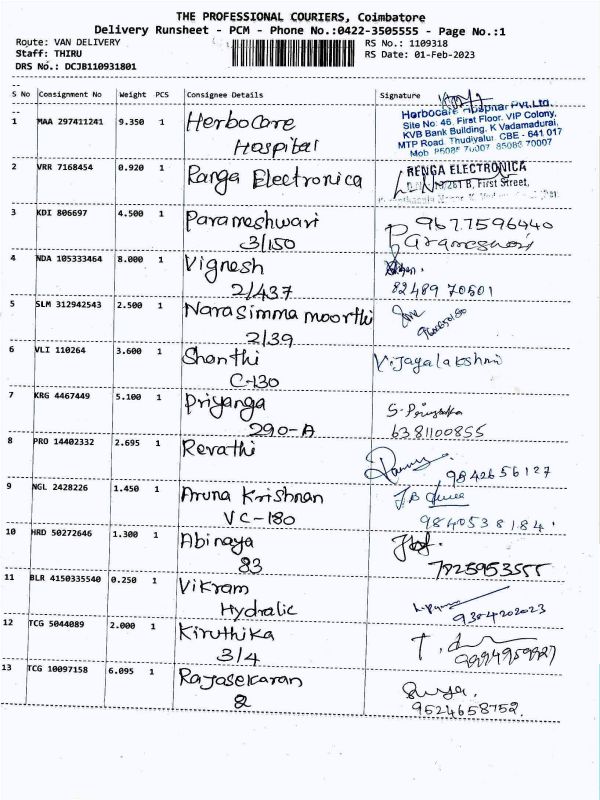 THE PROFESSIONAL COURIERS, Coimbatore
Delivery Runsheet - PCM - Phone No.:0422-3505555 - Page No.:1
Route: VAN DELIVERY RS No.: 1109318
Staff: THIRU RS Date: 01-Feb-2023
DRS No.: DCJB110931801
S No Consignment No Weight PCS Consignee Details Signature
1 MAA 297411241 9.350 1 Herbocare
Hospital
Herbocare Hospital Pvt.Ltd.
Site No: 46, First Floor, VIP Colony,
KVB Bank Building, K Vadamadurai,
MTP Road, Thudiyalur, CBE - 641 017
2 VRR 7168454 0.920 1 Ranga Electronica
RENGA ELECTRONICA
B, First Street,
3 KDI 806697 4.500 1 Parameshwari
3/150
9677596440
Parameshwari
4 NDA 105333464 8.000 1 Vignesh
2/437
82489 70501
5 SLM 312942543 2.500 1 Narasimma moorthi
2/39
6 VLI 110264 3.600 1 Shanthi
C-130
Vijayalakshmi
7 KRG 4467449 5.100 1 Priyanga
290-A
6381100855
8 PRO 14402332 2.695 1 Revathi
9842656127
9 NGL 2428226 1.450 1 Aruna Krishnan
VC-180
9840538184.
10 HRD 50272646 1.300 1 Abinaya
83
7825953555
11 BLR 4150335540 0.250 1 Vikram
Hydralic
9384202023
12 TCG 5044089 2.000 1 Kiruthika
3/4
13 TCG 10097158 6.095 1 Rajasekaran
2
9524658752.